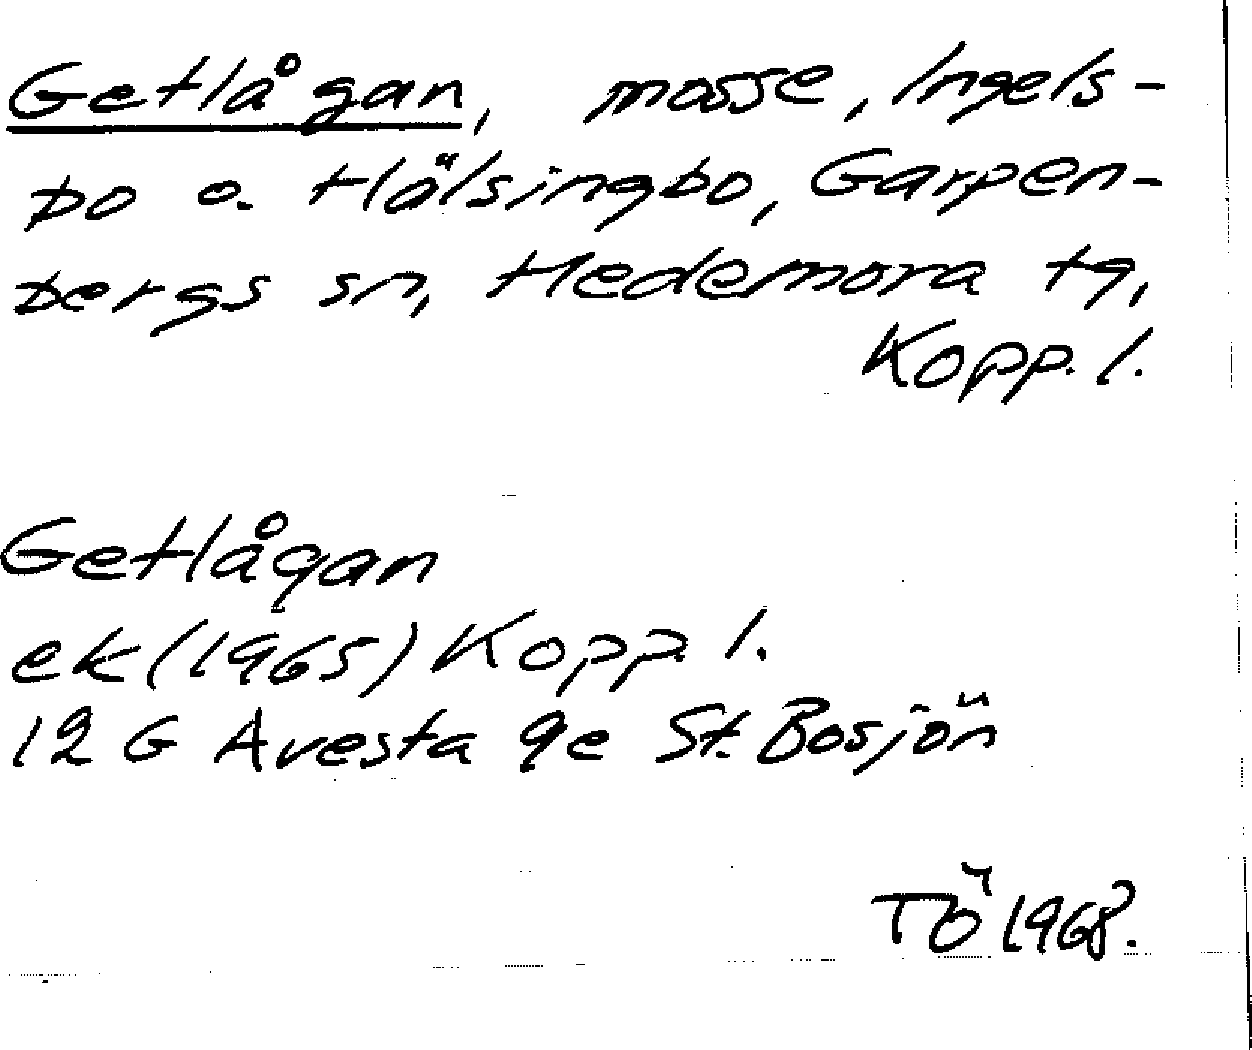 Getlågan, mosse, Ingels-
bo o. Hälsingbo, Garpen-
bergs sn, Hedemora tg,
Kopp. l.
Getlågan
ek (1965) Kopp. l.
12 G Avesta 9e St. Bosjön
TÖ 1968.